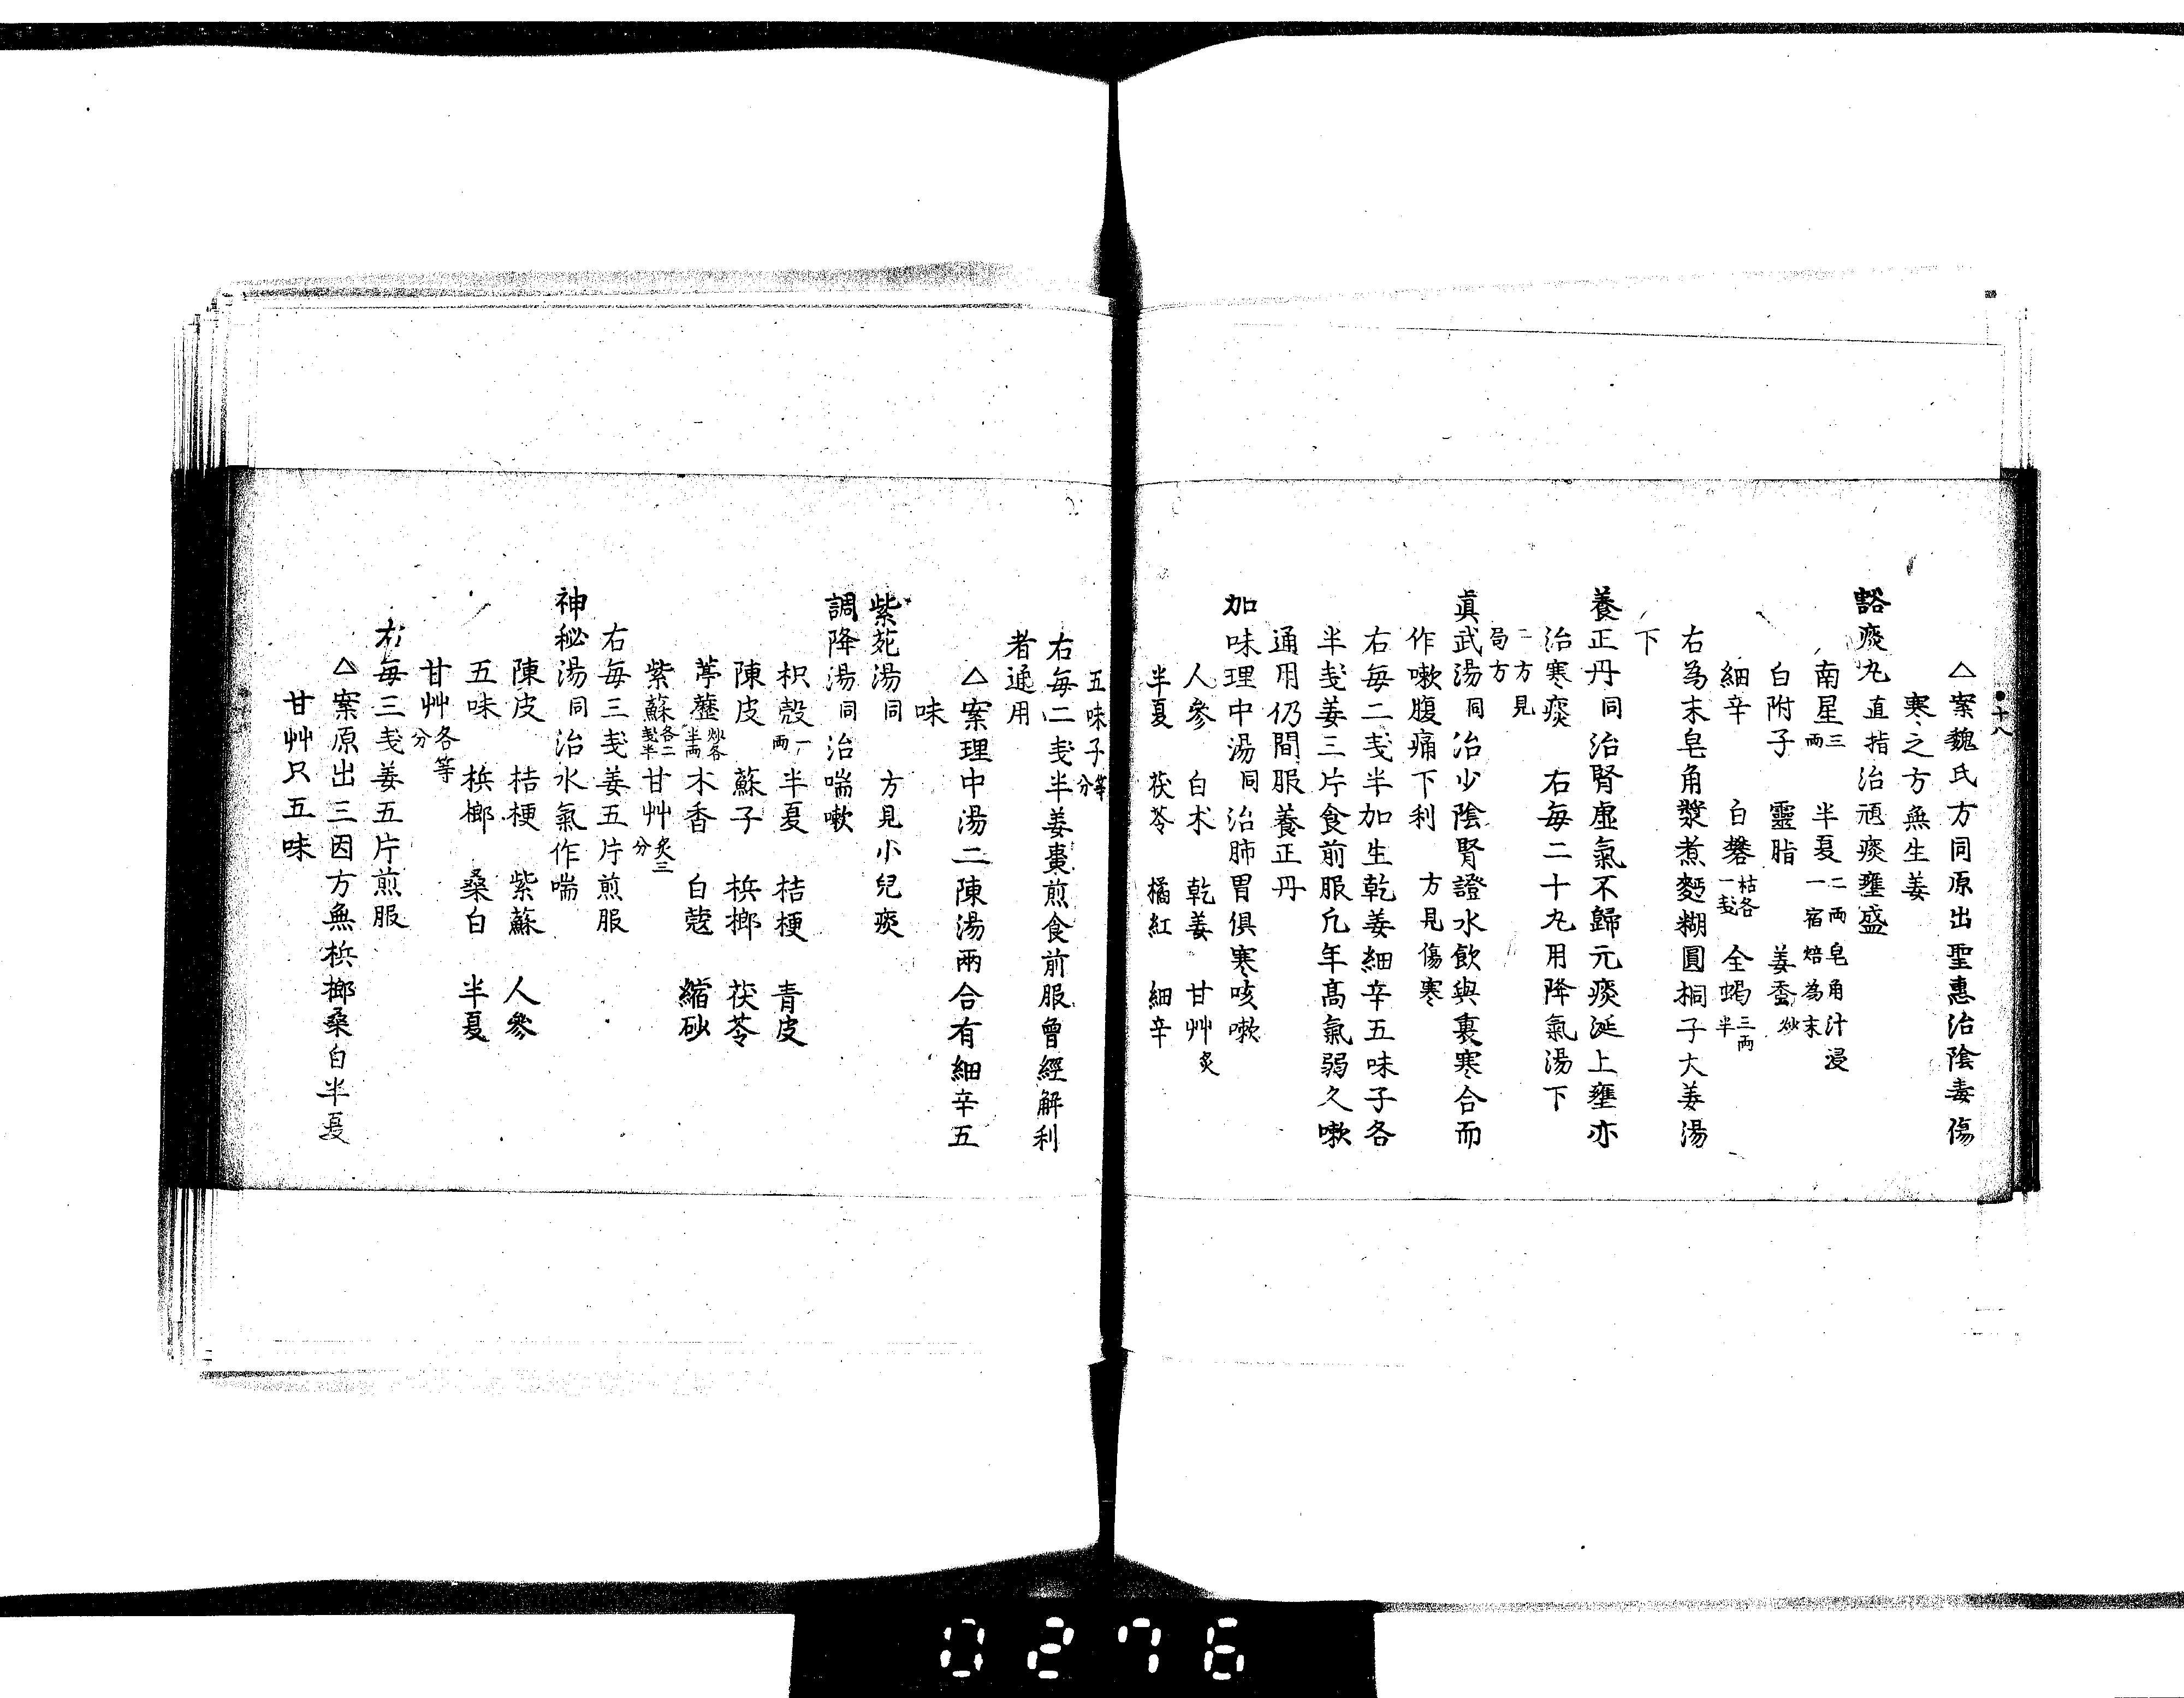 ●十八
△案魏氏方同原出聖惠治陰毒傷
寒之方無生姜
豁痰丸 直指 治頑痰壅盛
南星三両 半夏二両皂角汁浸一宿焙為末
白附子 靈脂 姜蚕炒
細辛 白礬枯各一戔 全蝎三両半
右為末皂角漿煮麪糊圓桐子大姜湯
下
養正丹 同 治腎虚氣不歸元痰涎上壅亦
治寒痰 右毎二十丸用降氣湯下
二方見局方
眞武湯 同 治少陰腎證水飲與裏寒合而
作嗽腹痛下利 方見傷寒
右毎二戔半加生乾姜細辛五味子各
半戔姜三片食前服凢年髙氣弱久嗽
通用仍間服養正丹
加味理中湯 同 治肺胃俱寒咳嗽
人參 白朮 乾姜 甘艸炙
半夏 茯苓 橘紅 細辛
五味子等分
右毎二戔半姜棗煎食前服曾經解利
者通用
△案理中湯二陳湯兩合有細辛五
味
紫菀湯 同 方見小兒痰
調降湯 同 治喘嗽
枳殻一両 半夏 桔梗 青皮
陳皮 蘇子 梹榔 茯苓
葶藶炒各半両 木香 白蔻 縮砂
紫蘇各二戔半 甘艸炙三分
右毎三戔姜五片煎服
神秘湯 同 治水氣作喘
陳皮 桔梗 紫蘇 人參
五味 梹榔 桑白 半夏
甘艸各等分
右毎三戔姜五片煎服
△案原出三因方無梹榔桑白半夏
甘艸只五味
0276